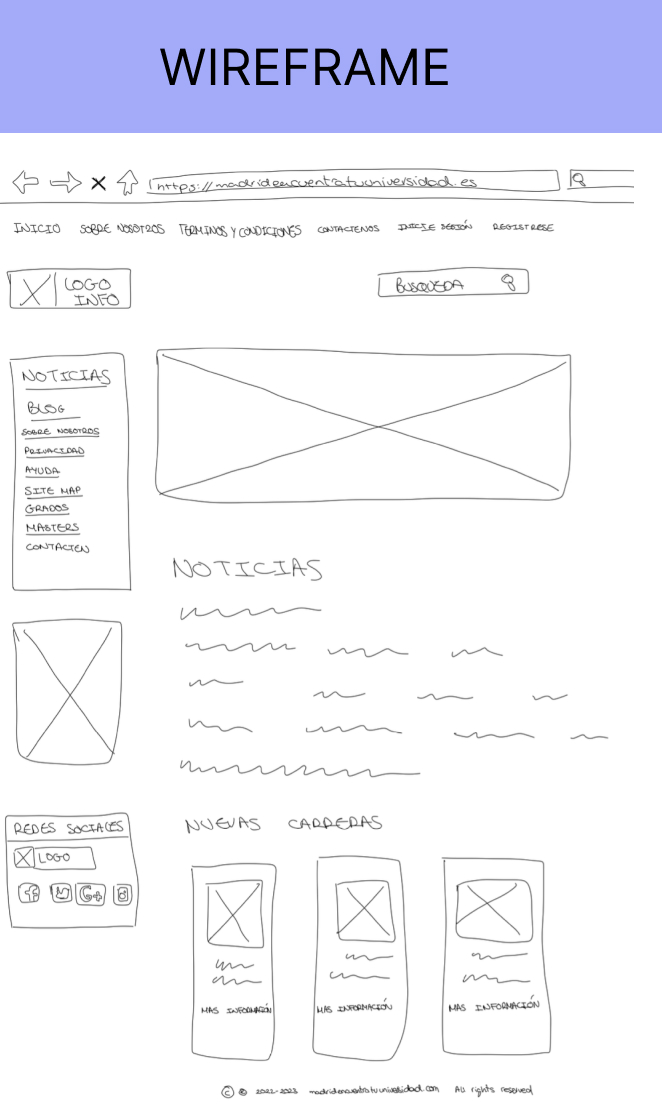 WIREFRAME
https://madridencuentratuuniversidad.es
INICIO SOBRE NOSOTROS TERMINOS Y CONDICIONES CONTACTENOS INICIE SESIÓN REGISTRESE
LOGO
INFO
BUSQUEDA
NOTICIAS
BLOG
SOBRE NOSOTROS
PRIVACIDAD
AYUDA
SITE MAP
GRADOS
MASTERS
CONTACTEN
NOTICIAS
NUEVAS CARRERAS
REDES SOCIALES
LOGO
f G+
MAS INFORMARÓN MAS INFORMACIÓN MAS INFORMACIÓN
© ® 2022-2023 madridencuentratuuniversidad.com All rights reserved